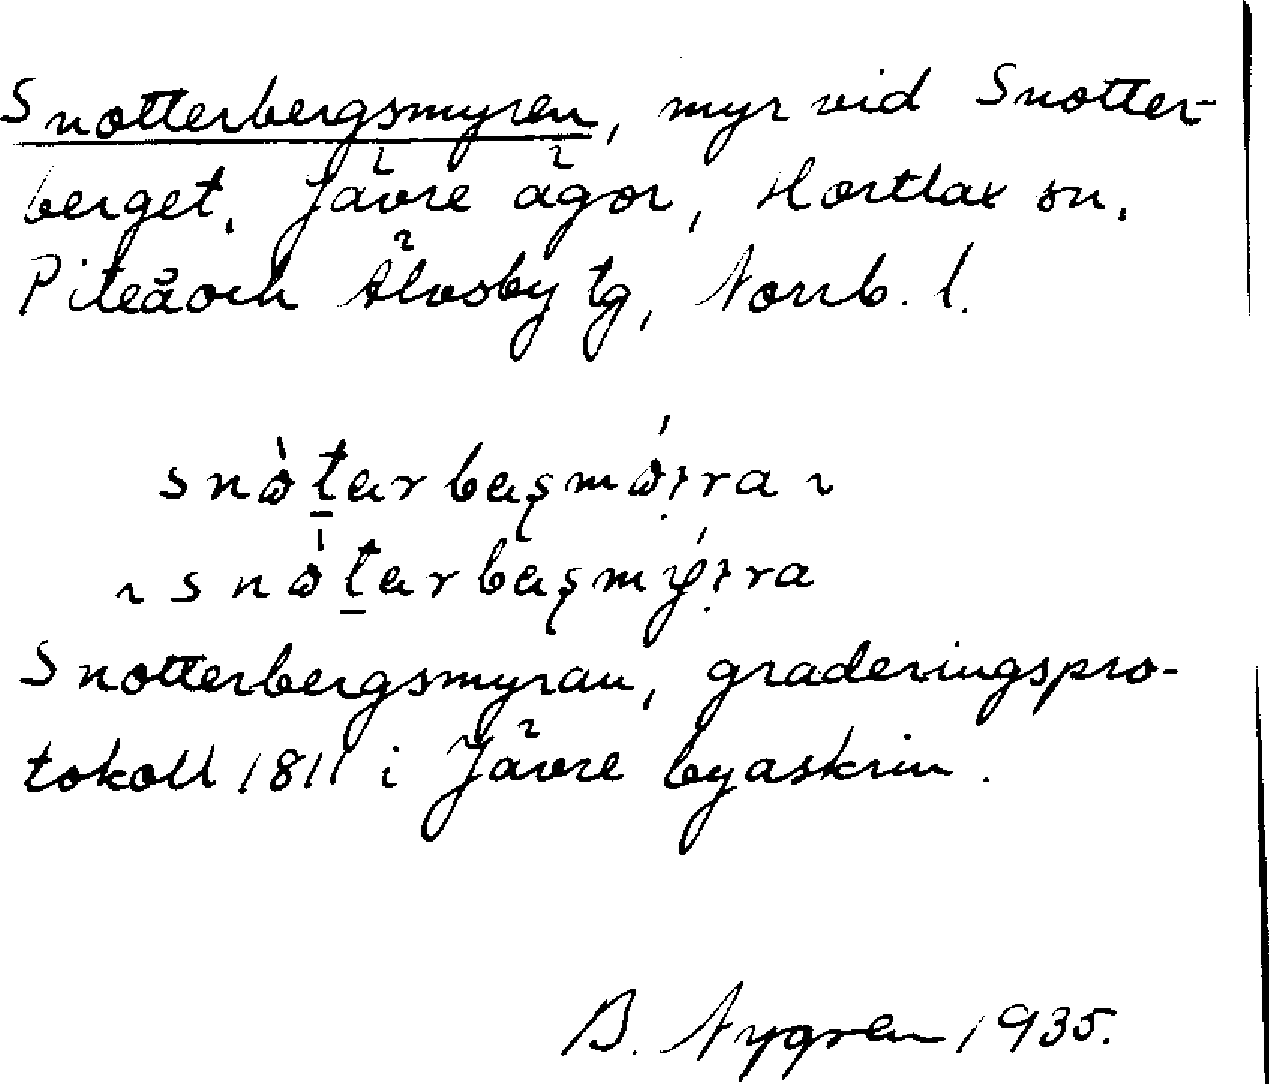 Snotterbergsmyren, myr vid Snotter-
berget, Jävre ägor, Hortlax sn,
Piteå och Älvsby tg, Norrb. l.
Snotterbergsmyran, graderingspro-
tokoll 1811 i Jävre byaskrin.
B. Nygren 1935.